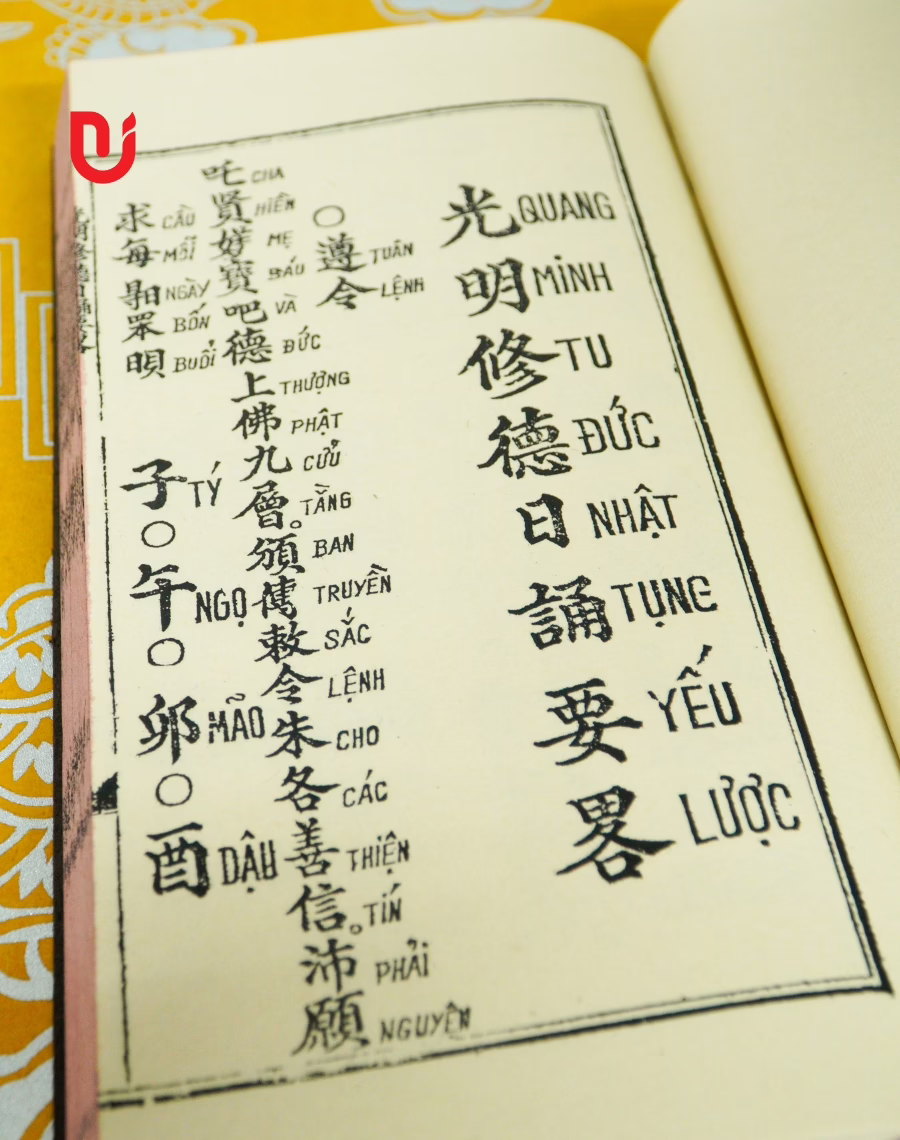 光明修德日誦要畧
QUANG MINH TU ĐỨC NHẬT TỤNG YẾU LƯỢC
○遵令
TUÂN LỆNH
吒賢媄寶吧德上佛九層。頒傳敕令朱各善信。沛願
CHA HIỀN MẸ BÁU VÀ ĐỨC THƯỢNG PHẬT CỬU TẦNG BAN TRUYỀN SẮC LỆNH CHO CÁC THIỆN TÍN PHẢI NGUYỆN
求每𣈜罘𣇜
CẦU MỖI NGÀY BỐN BUỔI
子○午○卯○酉
TÝ NGỌ MÃO DẬU